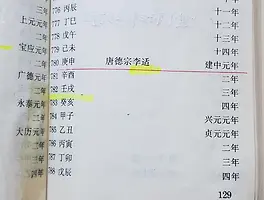 三年 776 丙辰 十一年
上元元年 777 丁巳 十二年
二年 778 戊午 十三年
宝应元年 779 己未 十四年
二年 780 庚申 唐德宗李适 建中元年
广德元年 781 辛酉 二年
二年 782 壬戌 三年
永泰元年 783 癸亥 四年
二年 784 甲子 兴元元年
大历元年 785 乙丑 贞元元年
二年 786 丙寅 二年
三年 787 丁卯 三年
四年 788 戊辰 四年
129